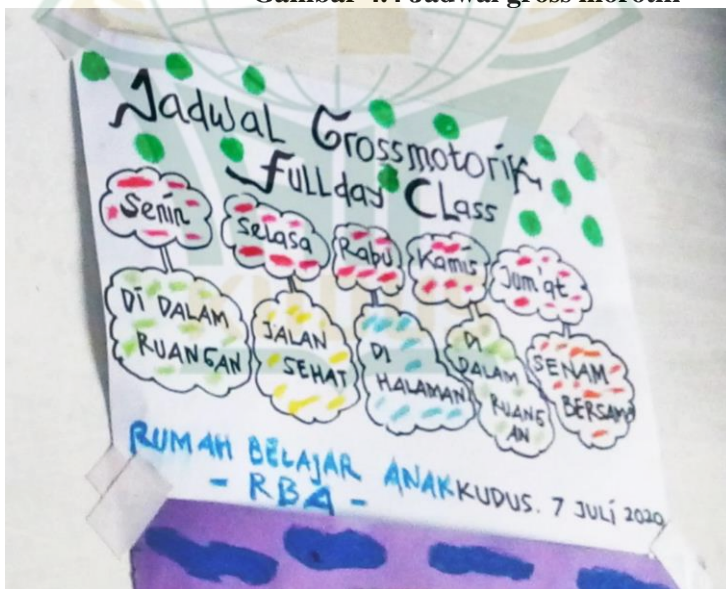 Jadwal Grossmotorik
Fullday Class
Senin
Selasa
Rabu
Kamis
Jum'at
DI DALAM
RUANGAN
JALAN
SEHAT
DI
HALAMAN
DI
DALAM
RUANG
AN
SENAM
BERSAMA
RUMAH BELAJAR ANAK
- RBA -
KUDUS. 7 JULI 2020